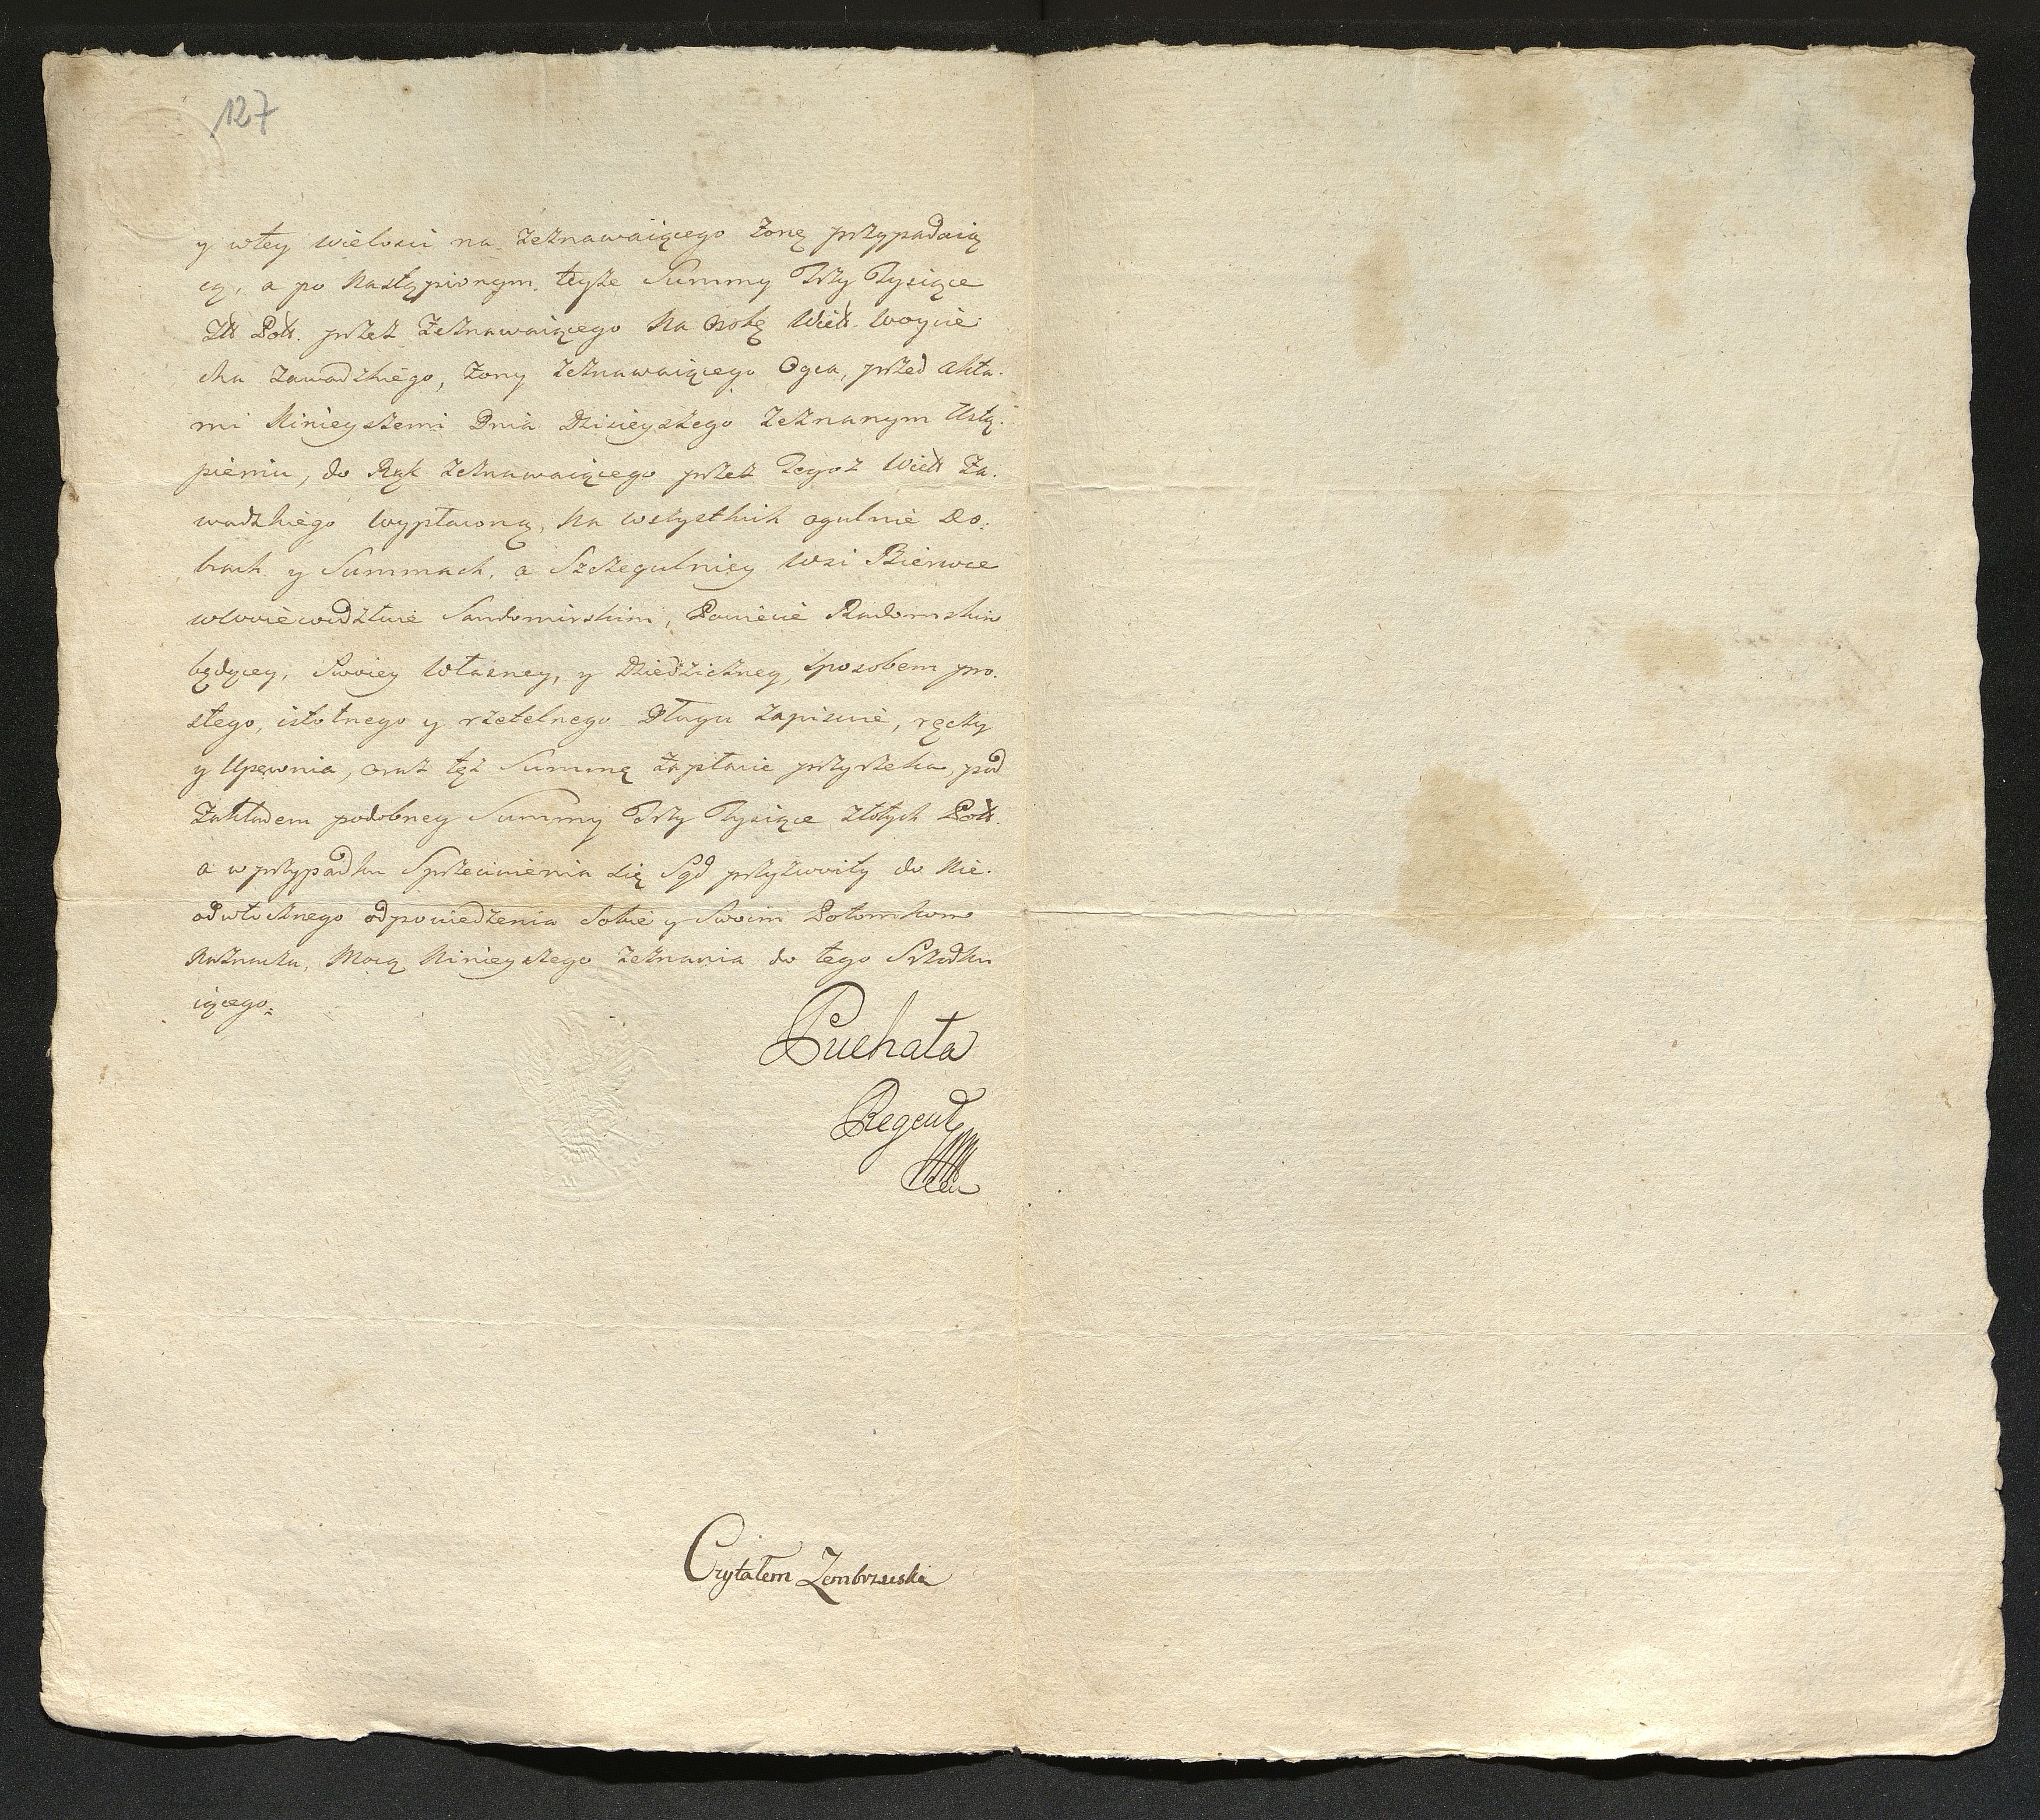 127
y wtey wielosci na zeznawaiącego Zonę przypadaią
cą, a po Nastąpionym teyże Summy Trzy Tysiące
Złł Poll. przez Zeznawaiącego Na Osobę Wiell. Woycie
cha Zawadzkiego, Zony Zeznawaiącego Oyca, przed Akta.
mi Ninieyszemi Dnia Dzisieyszego Zeznanym Ustą.
pieniu, do Rąk Zeznawaiącego przez Tegoż Wiell Za.
wadzkiego Wypłaconą, Na Wszystkich ogulnie Do.
brach y Summach, a Szczegulniey Wsi Bierwce
wWoiewodztwie Sandomirskim, Powiecie Radomskim
będącey, Swoiey Własney, y Dziedziczney, sposobem pro.
stego, istotnego y rzetelnego Długu zapisuie, ręczy
y Upewnia, oraz tęż Summę Zapłacić przyrzeka, pod
Zakładem podobney Summy Trzy Tysiące Złotych Poll.
a wprzypadku Sprzeciwienia się Sąd przyzwoity do Nie.
odwłocznego odpowiedzenia Sobie y Swoim Potomkom
Naznacza, Mocą Ninieyszego Zeznania do tego Srzodku
iącego.
Puchała
Regent
Czytałem Zembrzuski